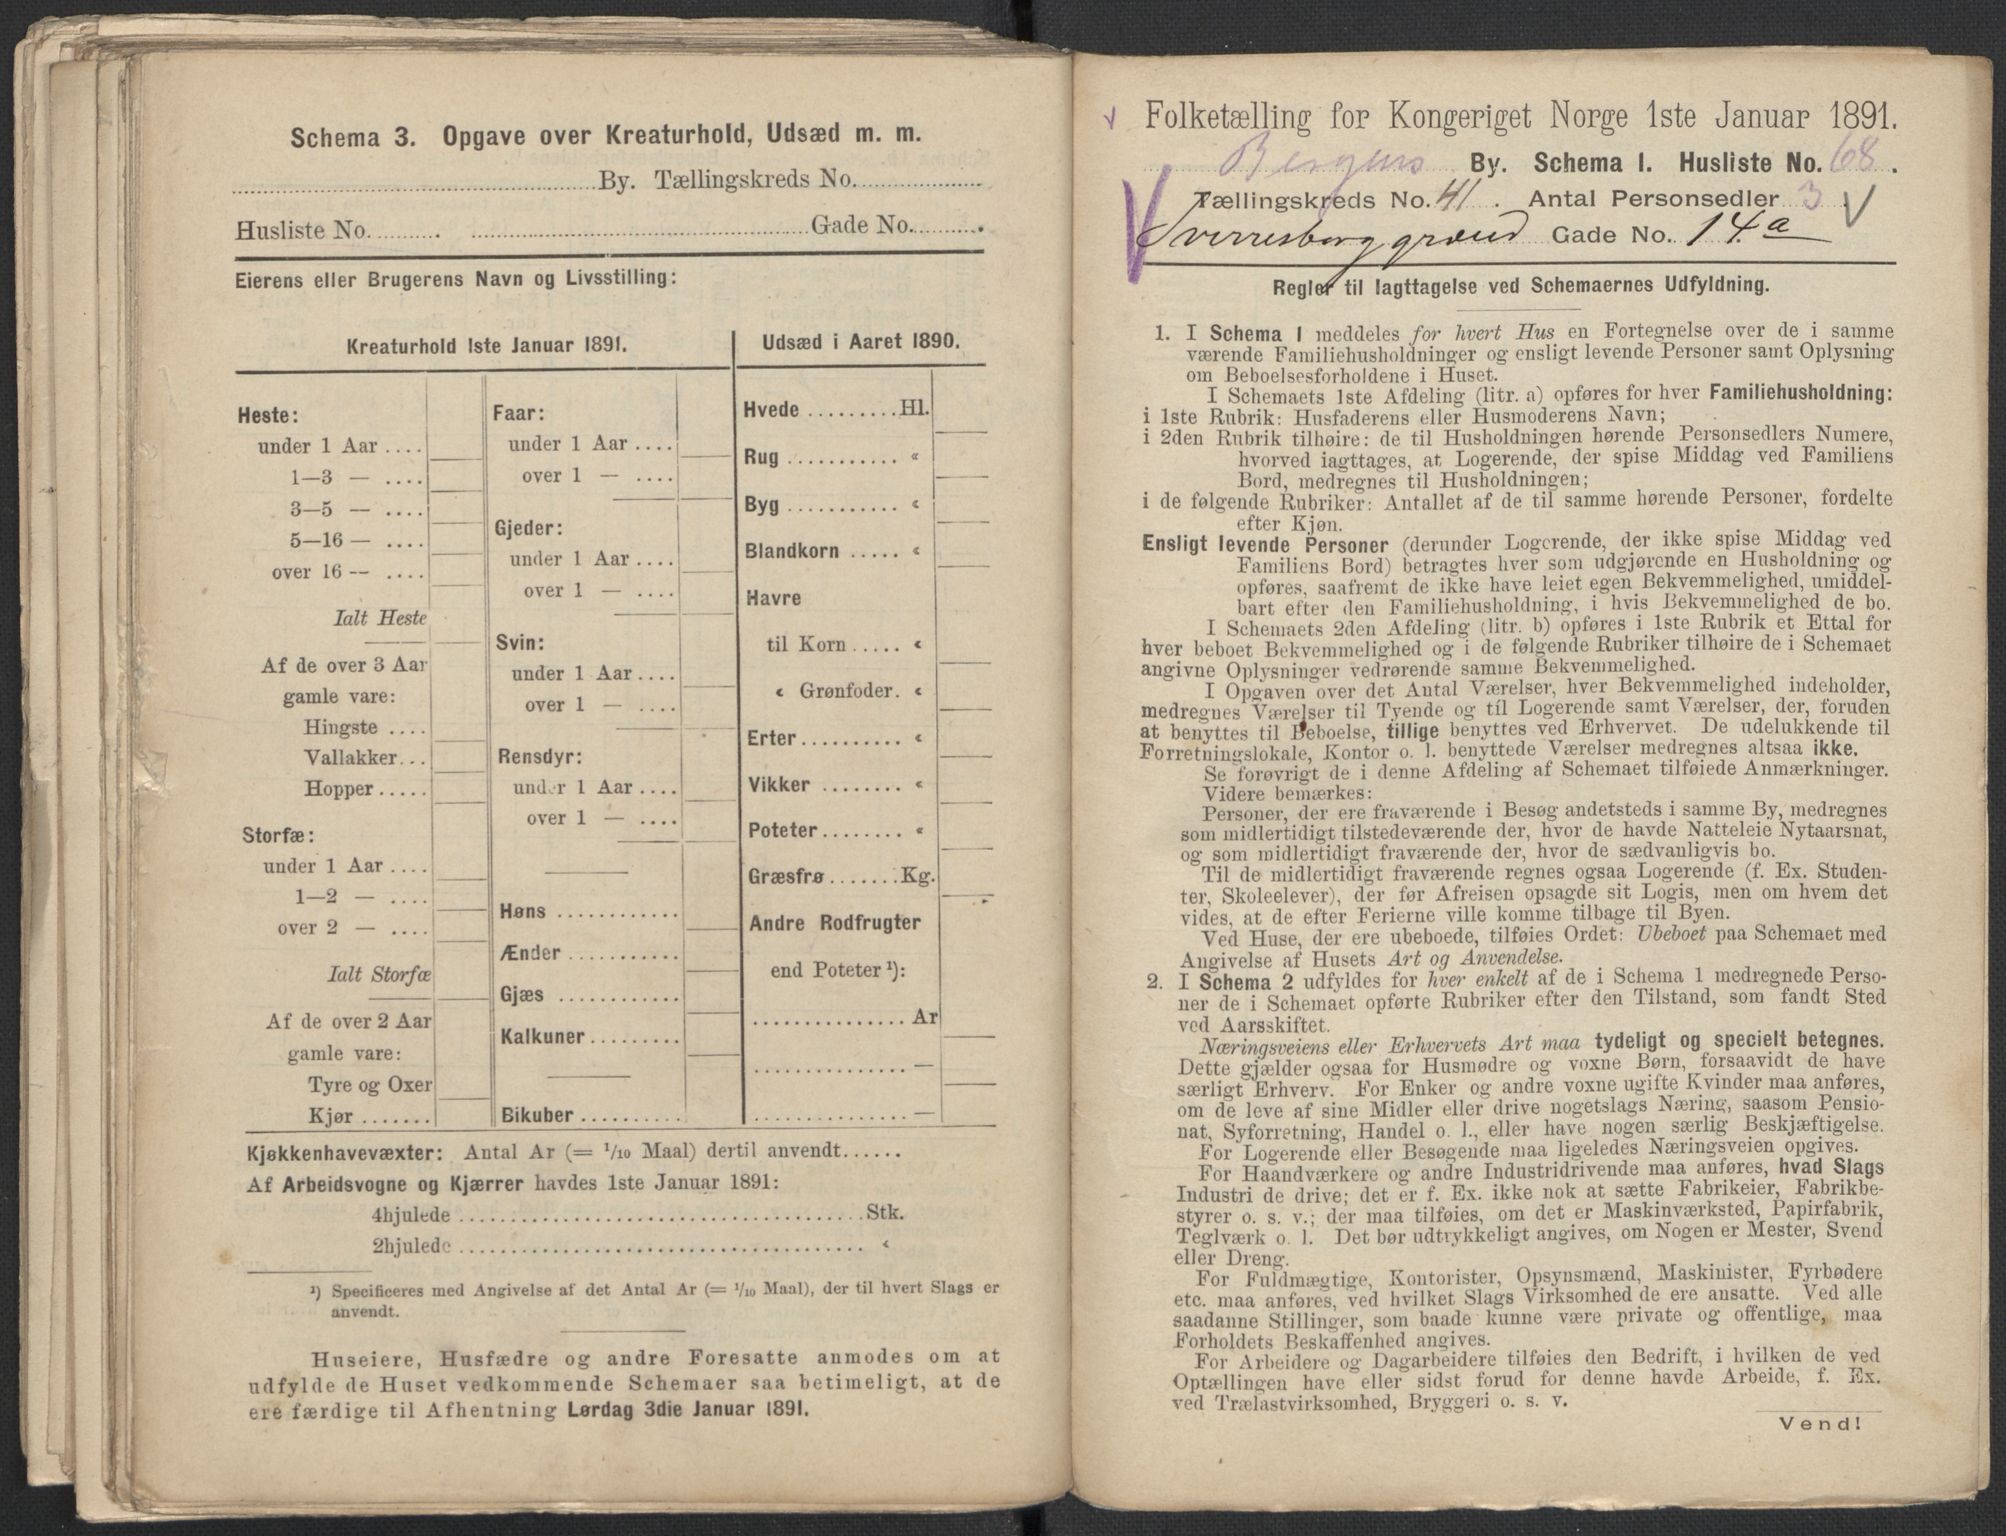 Schema 3. Opgave over Kreaturhold, Udsæd m. m.
By. Tællingskreds No.
Husliste No. Gade No.
Eierens eller Brugerens Navn og Livsstilling:
Kreaturhold 1ste Januar 1891.
Heste:
under 1 Aar
1—3 —
3—5 —
5—16 —
over 16 —
Ialt Heste
Af de over 3 Aar
gamle vare:
Hingste
Vallakker
Hopper
Storfæ:
under 1 Aar
1—2 —
over 2 —
Ialt Storfæ
Af de over 2 Aar
gamle vare:
Tyre og Oxer
Kjør
Faar:
under 1 Aar
over 1 —
Gjeder:
under 1 Aar
over 1 —
Svin:
under 1 Aar
over 1 —
Rensdyr:
under 1 Aar
over 1 —
Høns
Ænder
Gjæs
Kalkuner
Bikuber
Udsæd i Aaret 1890.
Hvede Hl.
Rug «
Byg «
Blandkorn «
Havre
til Korn «
« Grønfoder. «
Erter «
Vikker «
Poteter «
Græsfrø Kg.
Andre Rodfrugter
end Poteter ¹):
Ar
—
—
Kjøkkenhavevæxter: Antal Ar (= 1/10 Maal) dertil anvendt
Af Arbeidsvogne og Kjærrer havdes 1ste Januar 1891:
4hjulede Stk.
2hjulede «
¹) Specificeres med Angivelse af det Antal Ar (= 1/10 Maal), der til hvert Slags er
anvendt.
Huseiere, Husfædre og andre Foresatte anmodes om at
udfylde de Huset vedkommende Schemaer saa betimeligt, at de
ere færdige til Afhentning Lørdag 3die Januar 1891.
Folketælling for Kongeriget Norge 1ste Januar 1891.
Bergens By. Schema 1. Husliste No. 68.
Tællingskreds No. 41. Antal Personsedler 3
Sverresborggrænd Gade No. 14.a
Regler til Iagttagelse ved Schemaernes Udfyldning.
1. I Schema 1 meddeles for hvert Hus en Fortegnelse over de i samme
værende Familiehusholdninger og ensligt levende Personer samt Oplysning
om Beboelsesforholdene i Huset.
I Schemaets 1ste Afdeling (litr. a) opføres for hver Familiehusholdning:
i 1ste Rubrik: Husfaderens eller Husmoderens Navn;
i 2den Rubrik tilhøire: de til Husholdningen hørende Personsedlers Numere,
hvorved iagttages, at Logerende, der spise Middag ved Familiens
Bord, medregnes til Husholdningen;
i de følgende Rubriker: Antallet af de til samme hørende Personer, fordelte
efter Kjøn.
Ensligt levende Personer (derunder Logerende, der ikke spise Middag ved
Familiens Bord) betragtes hver som udgjørende en Husholdning og
opføres, saafremt de ikke have leiet egen Bekvemmelighed, umiddel-
bart efter den Familiehusholdning, i hvis Bekvemmelighed de bo.
I Schemaets 2den Afdeling (litr. b) opføres i 1ste Rubrik et Ettal for
hver beboet Bekvemmelighed og i de følgende Rubriker tilhøire de i Schemaet
angivne Oplysninger vedrørende samme Bekvemmelighed.
I Opgaven over det Antal Værelser, hver Bekvemmelighed indeholder,
medregnes Værelser til Tyende og til Logerende samt Værelser, der, foruden
at benyttes til Beboelse, tillige benyttes ved Erhvervet. De udelukkende til
Forretningslokale, Kontor o. l. benyttede Værelser medregnes altsaa ikke.
Se forøvrigt de i denne Afdeling af Schemaet tilføiede Anmærkninger.
Videre bemærkes:
Personer, der ere fraværende i Besøg andetsteds i samme By, medregnes
som midlertidigt tilstedeværende der, hvor de havde Natteleie Nytaarsnat,
og som midlertidigt fraværende der, hvor de sædvanligvis bo.
Til de midlertidigt fraværende regnes ogsaa Logerende (f. Ex. Studen-
ter, Skoleelever), der før Afreisen opsagde sit Logis, men om hvem det
vides, at de efter Ferierne ville komme tilbage til Byen.
Ved Huse, der ere ubeboede, tilføies Ordet: Ubeboet paa Schemaet med
Angivelse af Husets Art og Anvendelse.
2. I Schema 2 udfyldes for hver enkelt af de i Schema 1 medregnede Perso-
ner de i Schemaet opførte Rubriker efter den Tilstand, som fandt Sted
ved Aarsskiftet.
Næringsveiens eller Erhvervets Art maa tydeligt og specielt betegnes.
Dette gjælder ogsaa for Husmødre og voxne Børn, forsaavidt de have
særligt Erhverv. For Enker og andre voxne ugifte Kvinder maa anføres,
om de leve af sine Midler eller drive nogetslags Næring, saasom Pensio-
nat, Syforretning, Handel o. l., eller have nogen særlig Beskjæftigelse.
For Logerende eller Besøgende maa ligeledes Næringsveien opgives.
For Haandværkere og andre Industridrivende maa anføres, hvad Slags
Industri de drive; det er f. Ex. ikke nok at sætte Fabrikeier, Fabrikbe-
styrer o. s. v.; der maa tilføies, om det er Maskinværksted, Papirfabrik,
Teglværk o. l. Det bør udtrykkeligt angives, om Nogen er Mester, Svend
eller Dreng.
For Fuldmægtige, Kontorister, Opsynsmænd, Maskinister, Fyrbødere
etc. maa anføres, ved hvilket Slags Virksomhed de ere ansatte. Ved alle
saadanne Stillinger, som baade kunne være private og offentlige, maa
Forholdets Beskaffenhed angives.
For Arbeidere og Dagarbeidere tilføies den Bedrift, i hvilken de ved
Optællingen have eller sidst forud for denne havde Arbeide, f. Ex.
ved Trælastvirksomhed, Bryggeri o. s. v.
Vend!